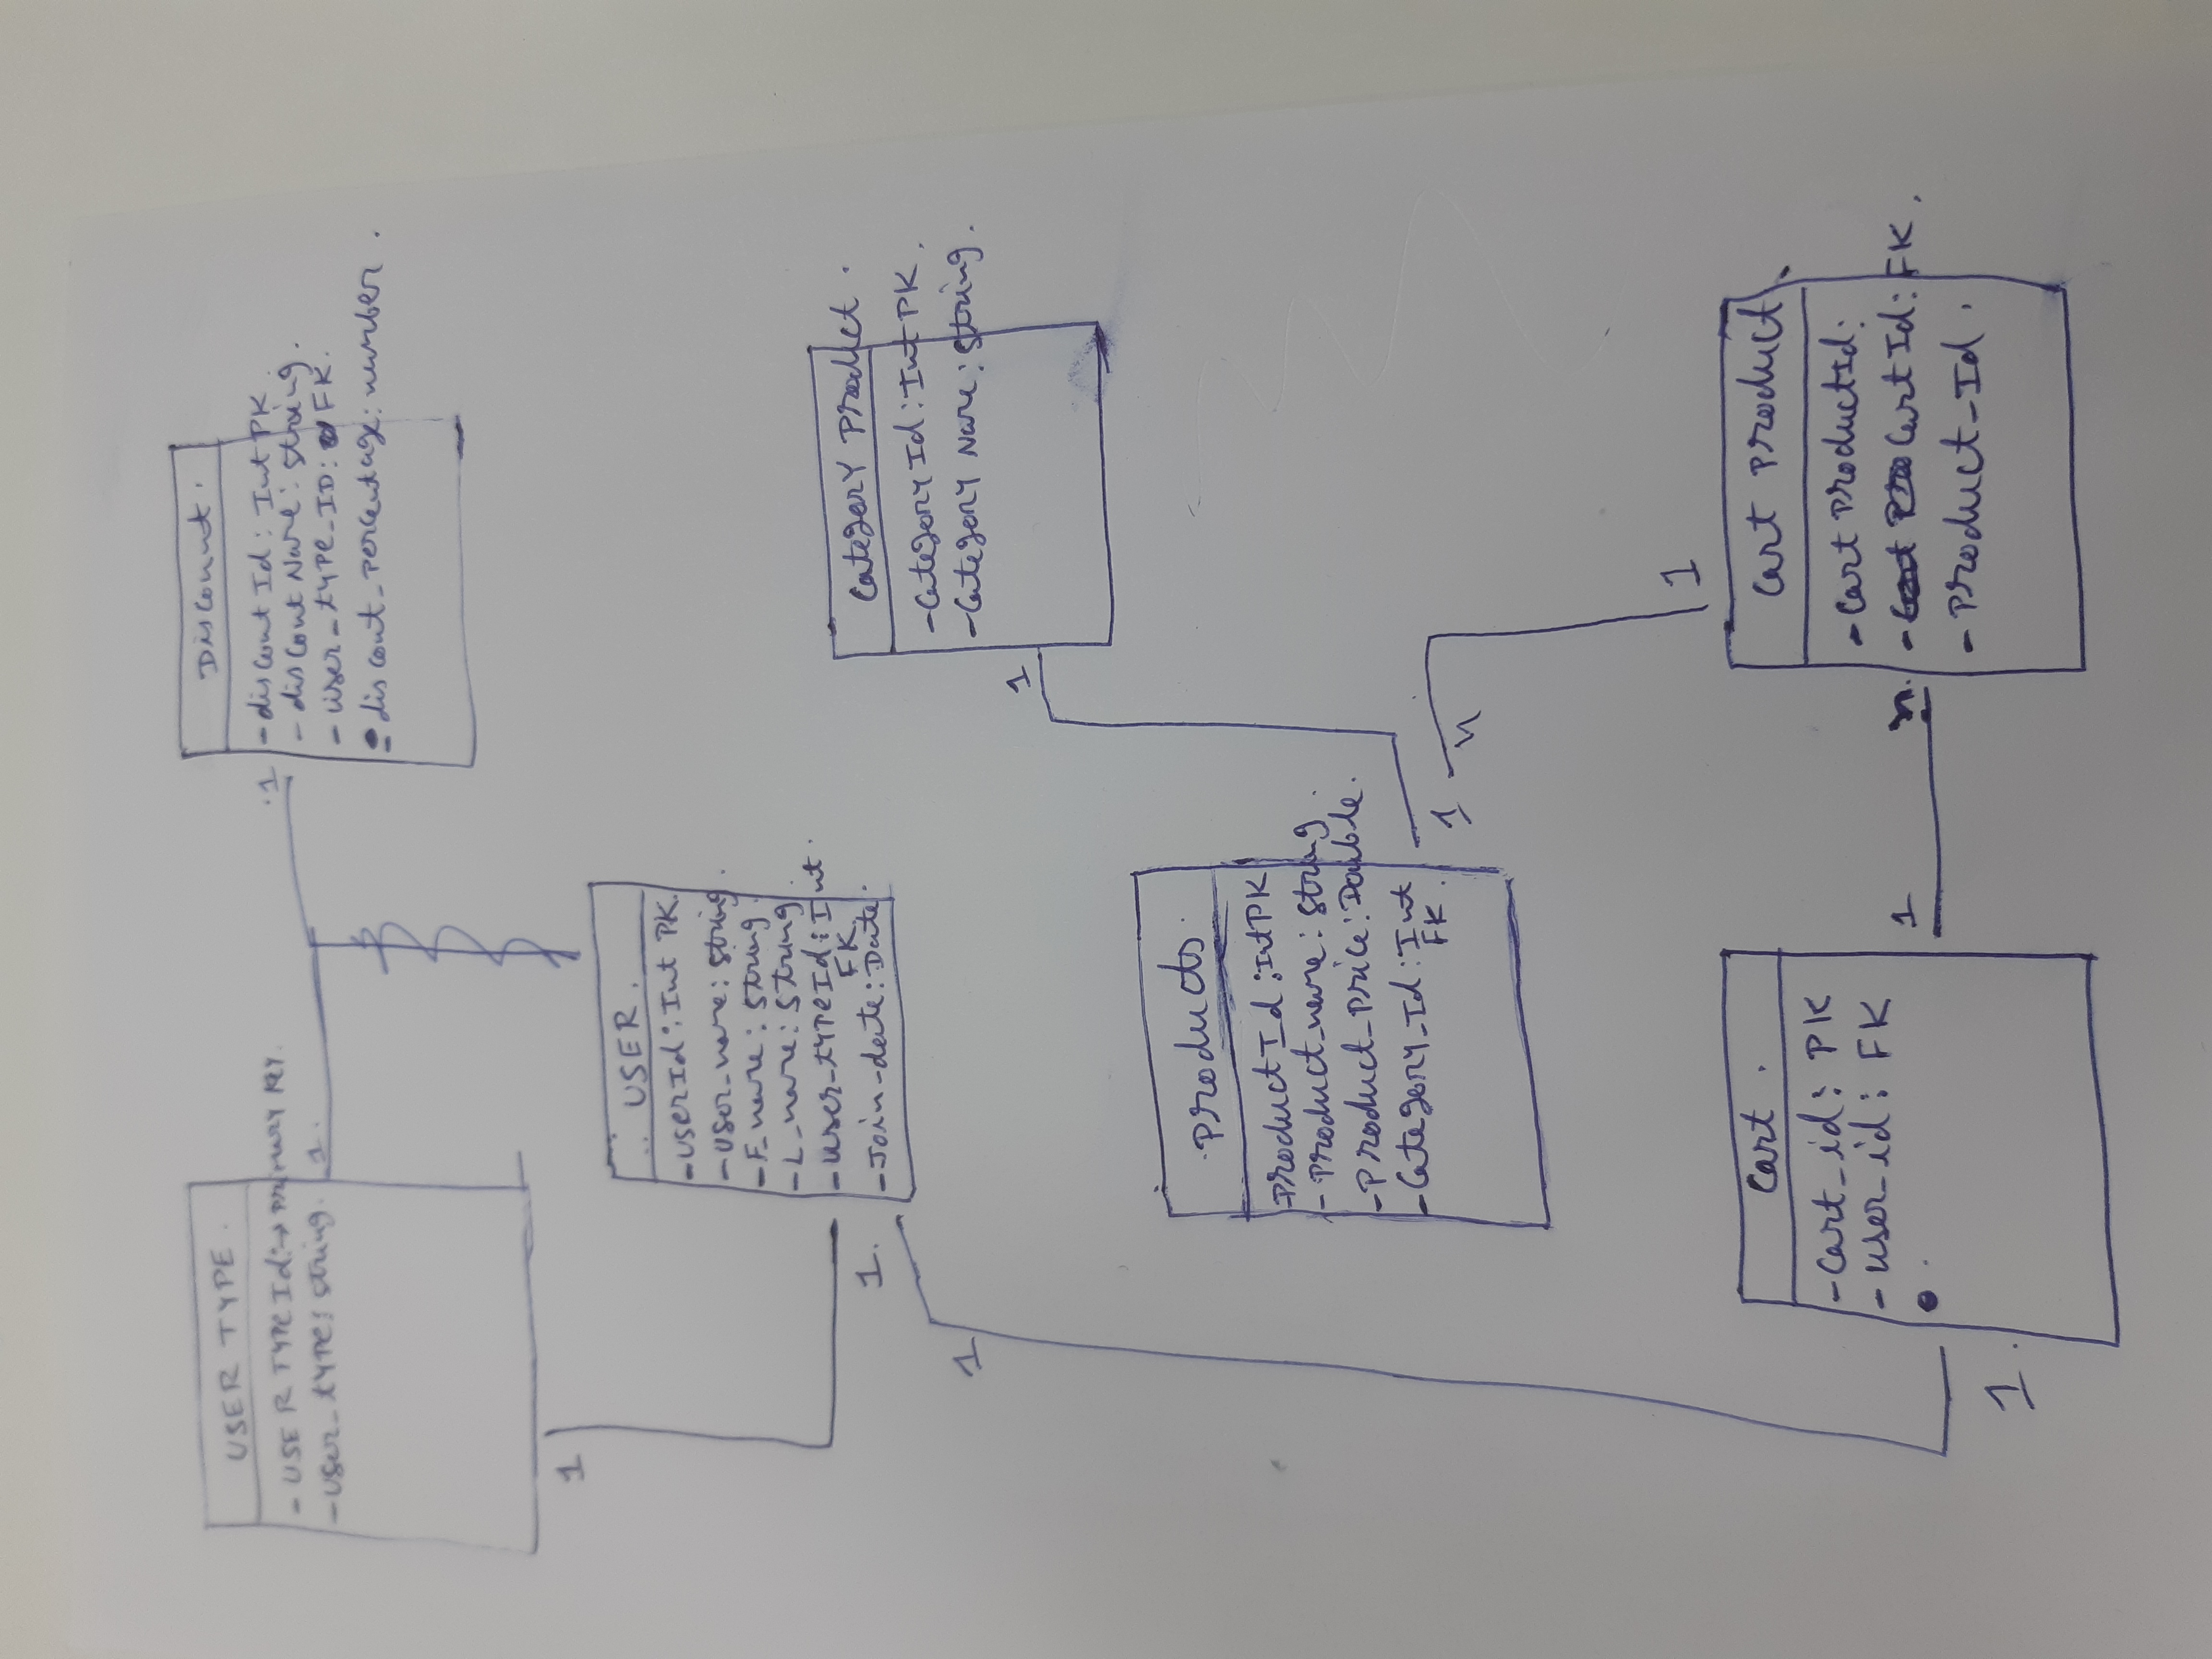 USER TYPE.
- USER TYPE Id: → Primary Key.
- User_type: string.
1.
.1
1
Discount.
- discont Id: Int PK.
- discont Name: string.
- user_type_ID: FK.
- discont_percentage: number.
.. USER.
- userId: Int PK.
- User_name: string.
- F_name: string.
- L_name: string.
- user_typeId: Int.
FK.
- Join-date: Date.
1.
1
Category Product.
- Category Id: Int PK.
- Category Name: string.
1
Products.
- Product Id: Int PK
- Product_name: string.
- Product_Price: Double.
- Category_Id: Int
FK.
1
n
1
Cart.
- Cart_id: PK
- user_id: FK
.
1.
1
n.
Cart Product.
- Cart ProductId:
- Cart Id: FK.
- Product_Id.